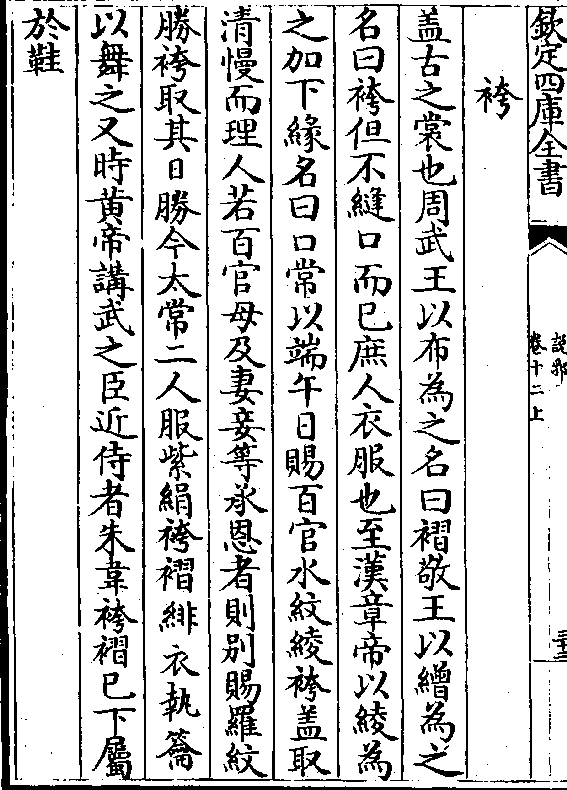 欽定四庫全書
說郛
卷十二上
袴
盖古之裳也周武王以布為之名曰褶敬王以繒為之
名曰袴但不縫口而已庶人衣服也至漢章帝以綾為
之加下緣名曰口常以端午日賜百官水紋綾袴盖取
清慢而理人若百官母及妻妾等承恩者則別賜羅紋
勝袴取其日勝今太常二人服紫絹袴褶緋衣執籥
以舞之又時黄帝講武之臣近侍者朱韋袴褶已下屬
於鞋